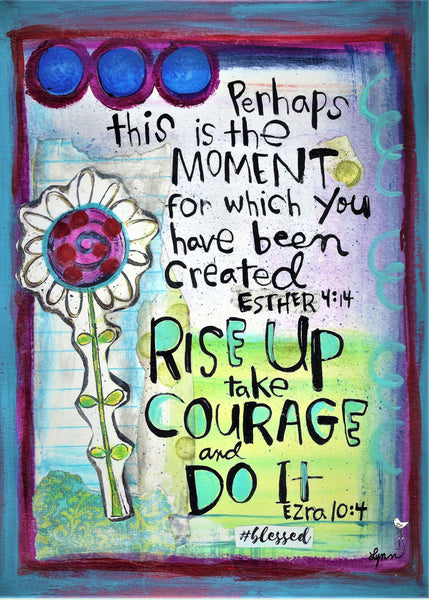 Perhaps
this is the
MOMENT
for which you
have been
created
ESTHER 4:14
RISE UP
take
COURAGE
and
DO It
EZra 10:4
#blessed
Lynn